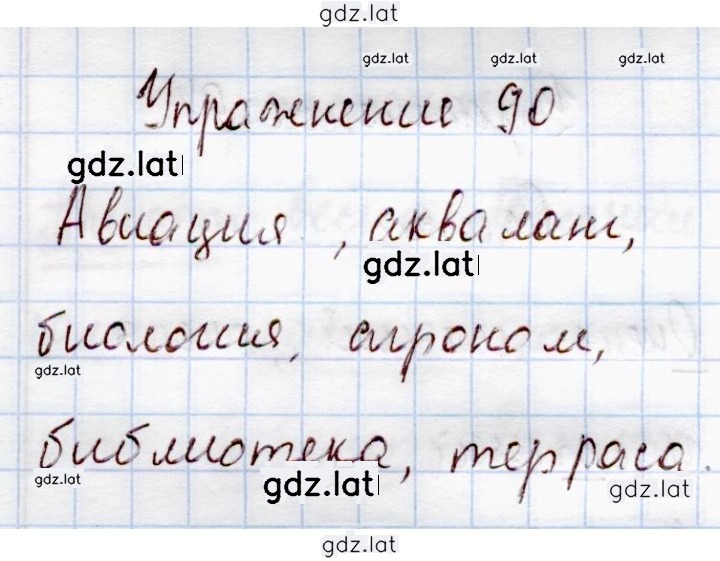 gdz.lat
gdz.lat gdz.lat gdz.lat
Упражнение 90
gdz.lat
Авиация, акваланг,
gdz.lat
биология, агроном,
gdz.lat
библиотека, терраса.
gdz.lat gdz.lat gdz.lat
gdz.lat